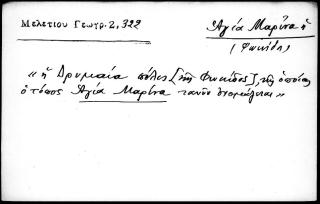 Μελετίου Γεωγρ. 2, 322
Ἁγία Μαρίνα ἡ
(Φωκίδος)
"ἡ Δρυμαία πόλις [τῆς Φωκίδος], τῆς ὁποίας
ὁ τόπος Ἁγία Μαρίνα τανῦν ὀνομάζεται"